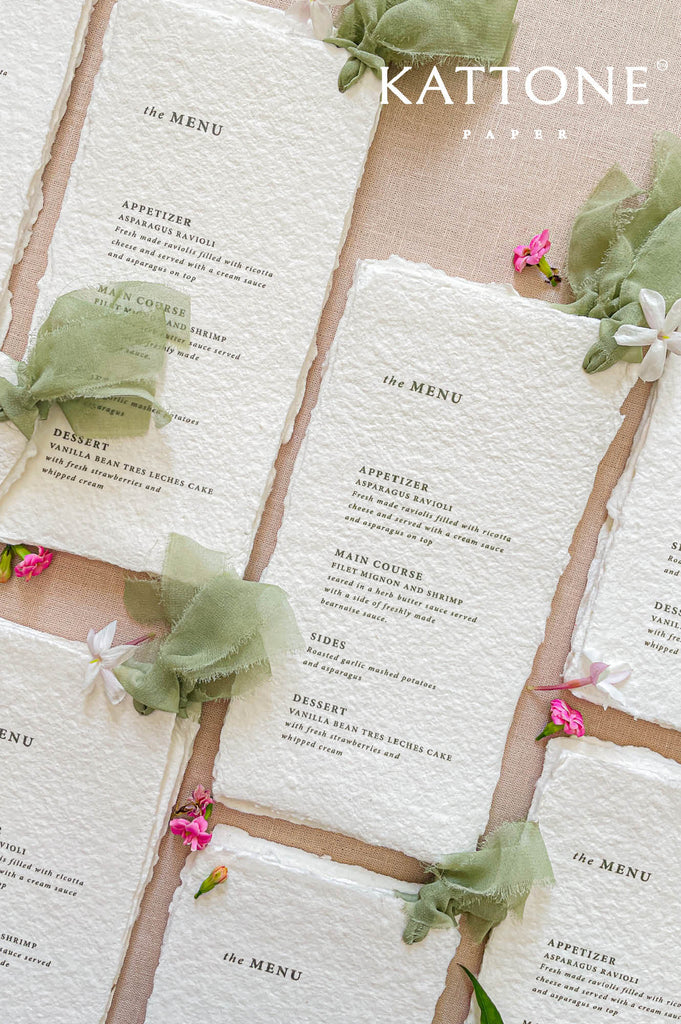 KATTONE
PAPER
the MENU
APPETIZER
ASPARAGUS RAVIOLI
Fresh made raviolis filled with ricotta
cheese and served with a cream sauce
and asparagus on top
MAIN COURSE
FILET MIGNON AND SHRIMP
butter sauce served
of freshly made
garlic mashed potatoes
asparagus
DESSERT
VANILLA BEAN TRES LECHES CAKE
with fresh strawberries and
whipped cream
the MENU
APPETIZER
ASPARAGUS RAVIOLI
Fresh made raviolis filled with ricotta
cheese and served with a cream sauce
and asparagus on top
MAIN COURSE
FILET MIGNON AND SHRIMP
seared in a herb butter sauce served
with a side of freshly made
bearnaise sauce.
SIDES
Roasted garlic mashed potatoes
and asparagus
DESSERT
VANILLA BEAN TRES LECHES CAKE
with fresh strawberries and
whipped cream
SI
Roasted
and
DESSE
VANILLA
with fre
whipped
ENU
R
AVIOLI
iolis filled with ricotta
ved with a cream sauce
n top
SE
D SHRIMP
utter sauce served
hly made
the MENU
the MENU
APPETIZER
ASPARAGUS RAVIOLI
Fresh made raviolis filled with
cheese and served with a cream
and asparagus on top